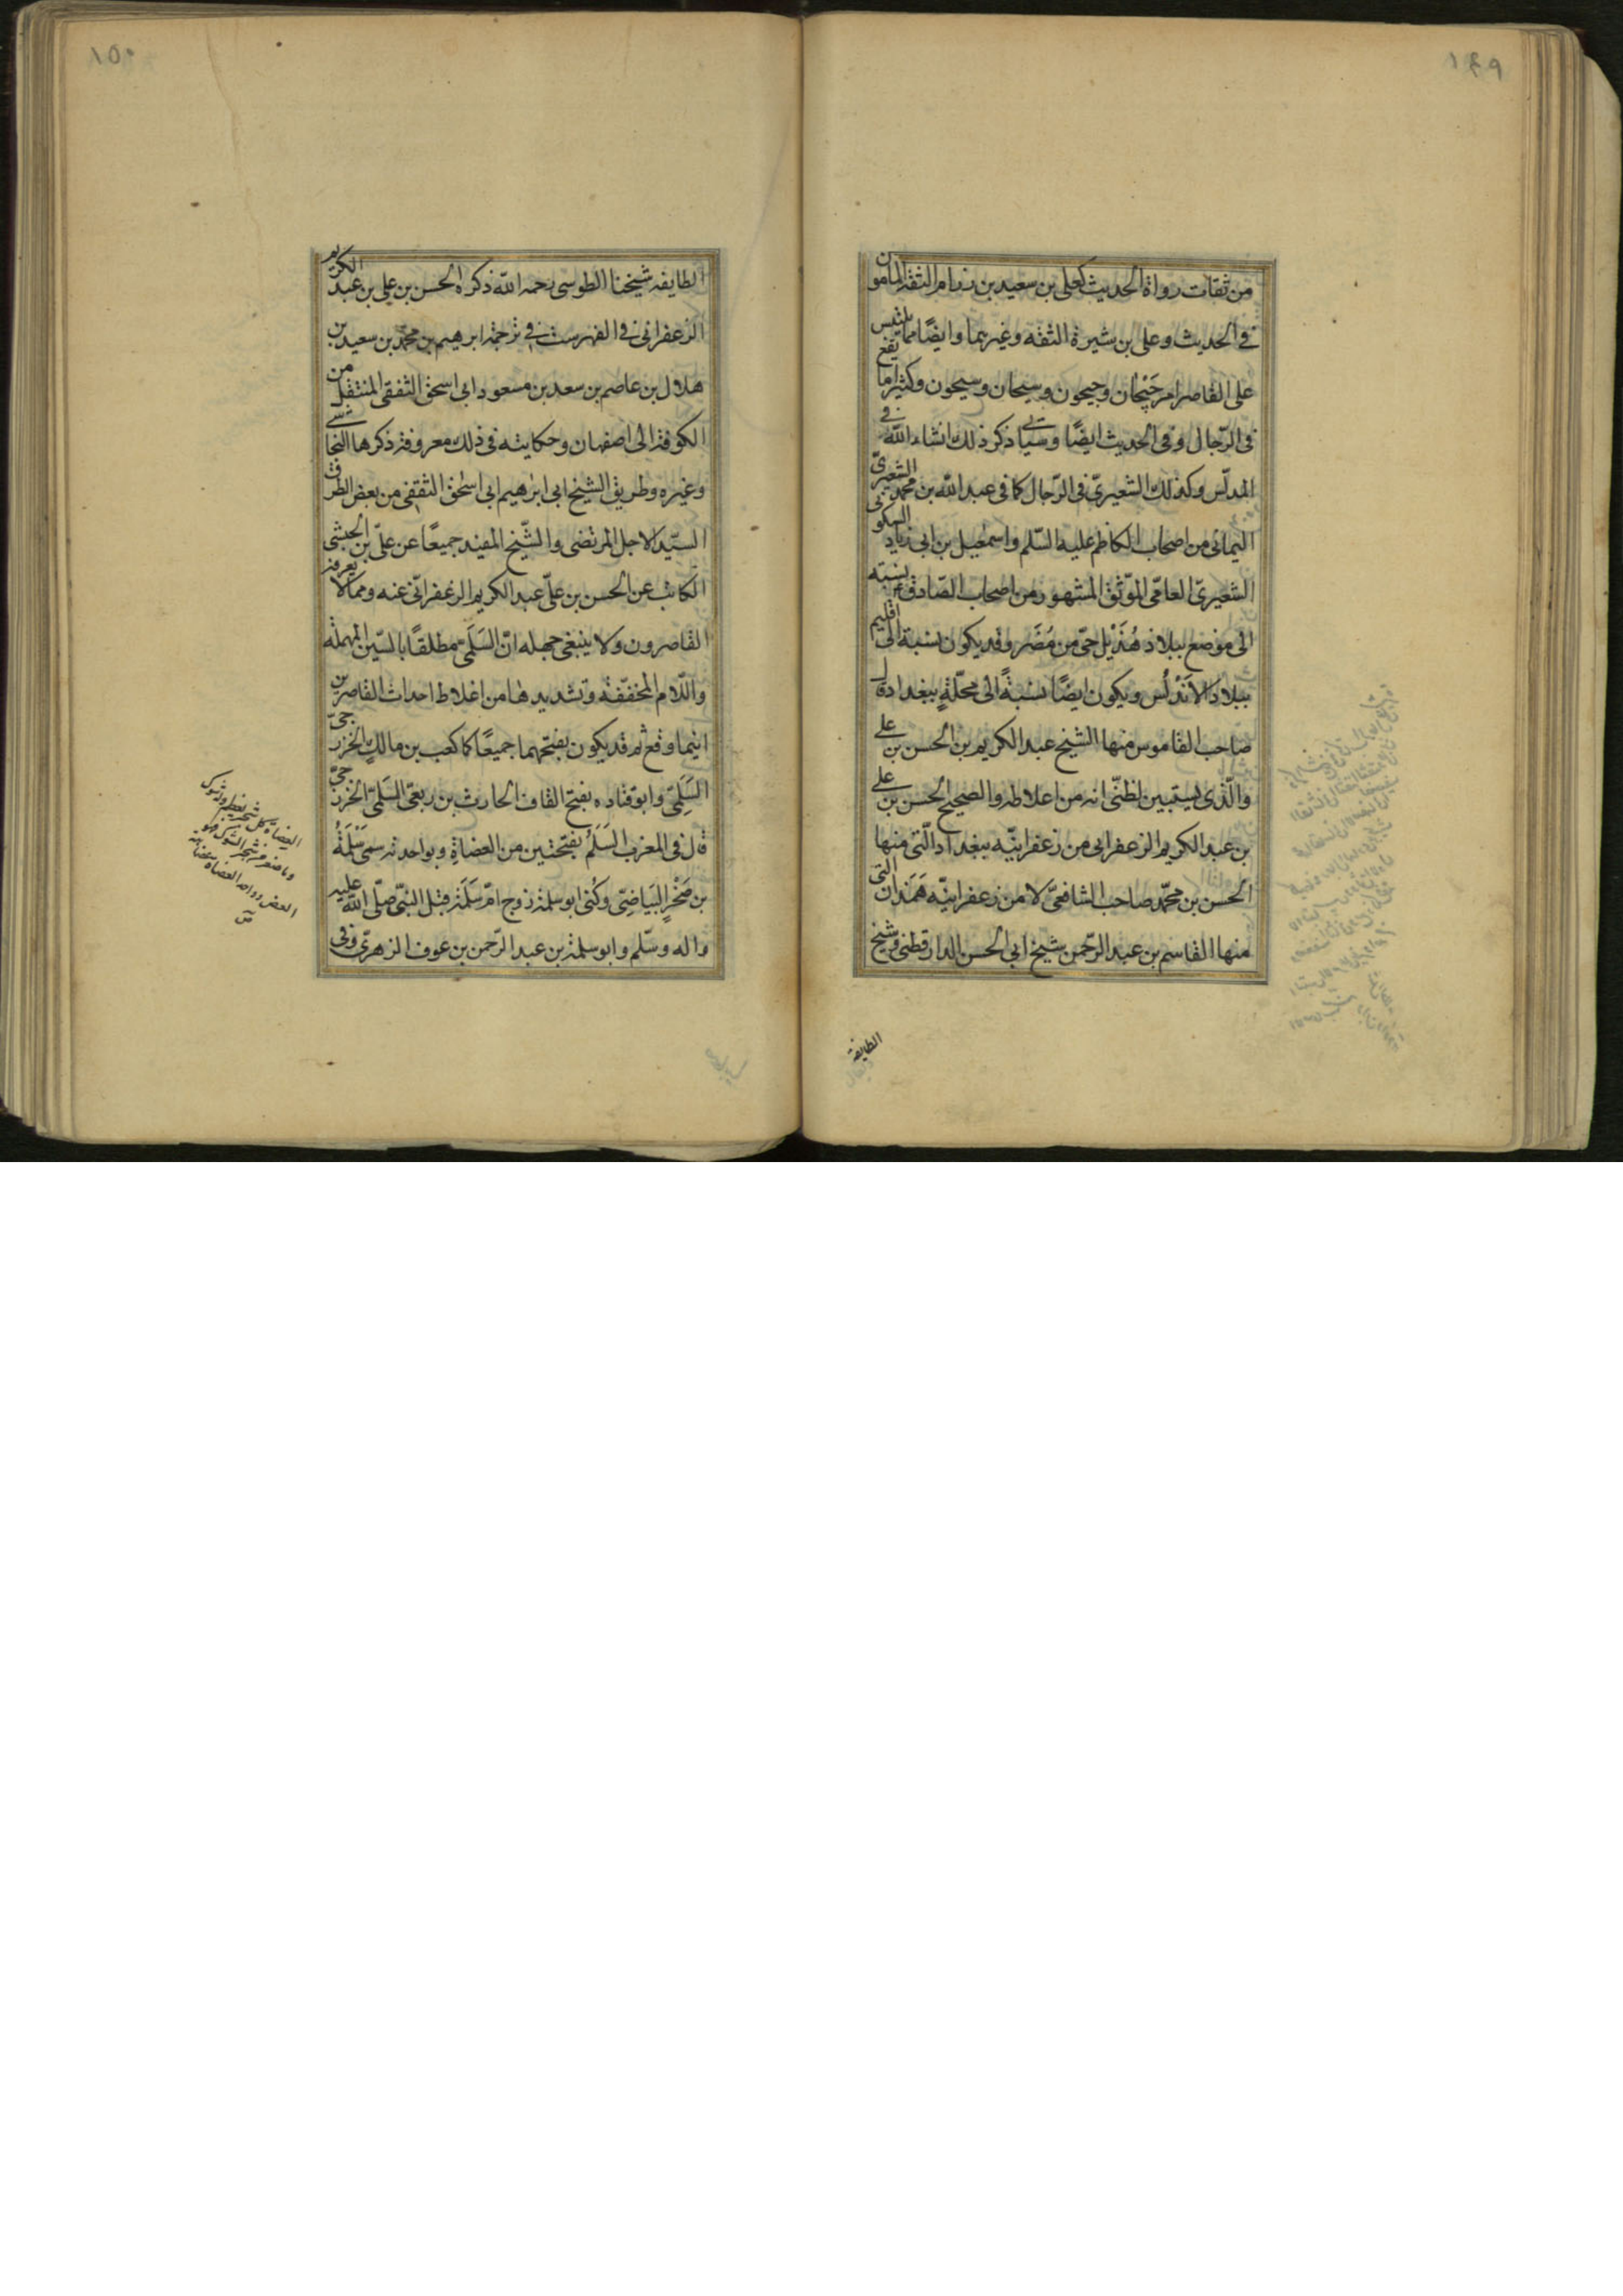 ١٤٩
من ثقات رواة الحديث كعلي بن سعيد بن رزام الثقة المامون
في الحديث وعلى بن شيرة الثقه وغيرهما وايضًا مما يلتبس
على القاصر امر جَيْحان وجيحون وسيحان وسيحون وكثيرا ما يقع
في الرّجال وفي الحديث ايضًا وسيأتى ذكر ذلك انشاء الله في
المدلّس وكذلك الشعيريّ في الرّجال كما في عبد الله بن محمد الشعيريّ
اليمانى من اصحاب الكاظم عليه السّلم واسمعيل بن ابى زياد السكونى
الشعيرىّ العامّى الموّثق المشهور من اصحاب الصّادق ع نسبته
الى موضع ببلاد هُذَيْل حىّ من مُضَر وقد يكون نسبة الى اقليم
ببلاد الاَنْدلُس ويكون ايضًا نسبةً الى محلّةٍ ببغداد قال
صاحب القاموس منها الشيخ عبد الكريم بن الحسن بن على
والّذى يستبين لظنّى انه من اغلاطه والصحيح الحسن بن على
بن عبد الكريم الزعفرانى من زعفرانيّه ببغداد الّتى منها
الحسن بن محمّد صاحب الشافعىّ لا من زعفرانيّه هَمَذان التى
منها القاسم بن عبد الرّحمن شيخ ابى الحسن الدارقطنى وشيخ
الطايفة
١٥٠
الطايفه شيخنا الطوسى رحمه الله ذكره الحسن بن علي بن عبد الكريم
الزعفرانى في الفهرست في ترجمة ابرهيم بن محمّد بن سعيد بن
هلال بن عاصم بن سعد بن مسعود ابى اسحق الثقفى المنتقل من
الكوفة الى اصفهان وحكايته في ذلك معروفة ذكرها النجاشى
وغيره وطريق الشيخ ابى ابرهيم ابى اسحق الثقفى من بعض الطرق
السيّد الاجل المرتضى والشّيخ المفيد جميعًا عن علىّ بن الحبشى
الكاتب عن الحسن بن علىّ عبد الكريم الزعفرانّى عنه ومما لا يعرفه
القاصرون ولا ينبغى جهله انّ السَلَمىّ مطلقًا بالسّين المهمله
واللّام المخفّفه وتشديدها من اغلاط احداث القاصرين
اينما وقع ثم قد يكون بفتحهما جميعًا كما كعب بن مالك الخزرجىّ
السَلَمِىّ وابو قتاده بفتح القاف الحارث بن ربعى السَلَمىّ الخزرجىّ
قال في المغرب السَلَمُ بفتحتين من العضاةِ وبواحدته سمى سَلَمَةُ
بن صَخْرٍ البَيَاضِىّ وكُنى ابو سلمة زوج امّ سَلَمَة قبل النبّى صلّى الله عليه
واله وسّلم وابو سلمة بن عبد الرّحمن بن عوف الزهرىّ وفى
العضاة كل شجر يعظم وله شوك